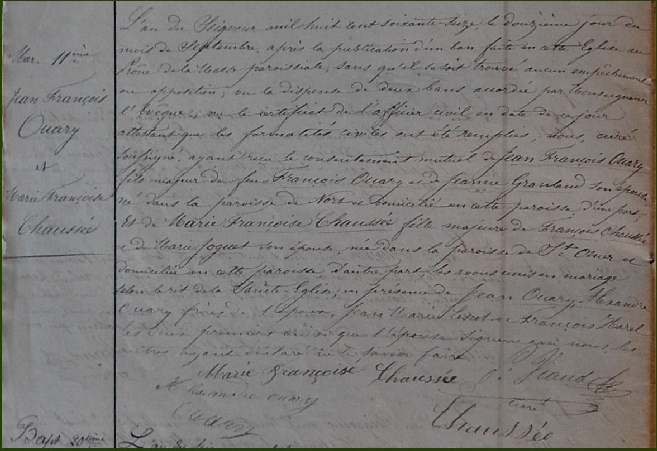 Mar. 11ième
Jean François
Ouary
et
Marie Françoise
Chaussée
L'an du Seigneur mil huit cent soixante seize, le douzième jour du
mois de Septembre, après la publication d'un ban faite en cette Eglise au
Prône de la Messe paroissiale, sans qu'il se soit trouvé aucun empêchement
ou opposition, vu la dispense de deux bans accordée par Monseigneur
l'Evêque, vu le certificat de l'officier civil en date de ce jour
attestant que les formalités civiles ont été remplies, nous, curé
soussigné, ayant reçu le consentement mutuel de Jean François Ouary
fils majeur de feu François Ouary et de Jeanne Granland son épouse
né dans la paroisse de Nort et domicilié en cette paroisse d'une part,
Et de Marie Françoise Chaussée fille majeure de François Chaussée
et de Marie Joguet son épouse, née dans la paroisse de St Omer et
domiciliée en cette paroisse d'autre part, les avons unis en mariage
selon le rit de la Sainte Eglise, en présence de Jean Ouary, Alexandre
Ouary frères de l'époux, Jean Marie et François Harel
les deux premiers ainsi que l'épouse signeront avec nous, les
autres ayant déclaré ne le savoir faire
Marie Françoise Chaussée
curé
Alexandre Ouary
Ouary
Chaussée
Bapt. 20ième
L'an du